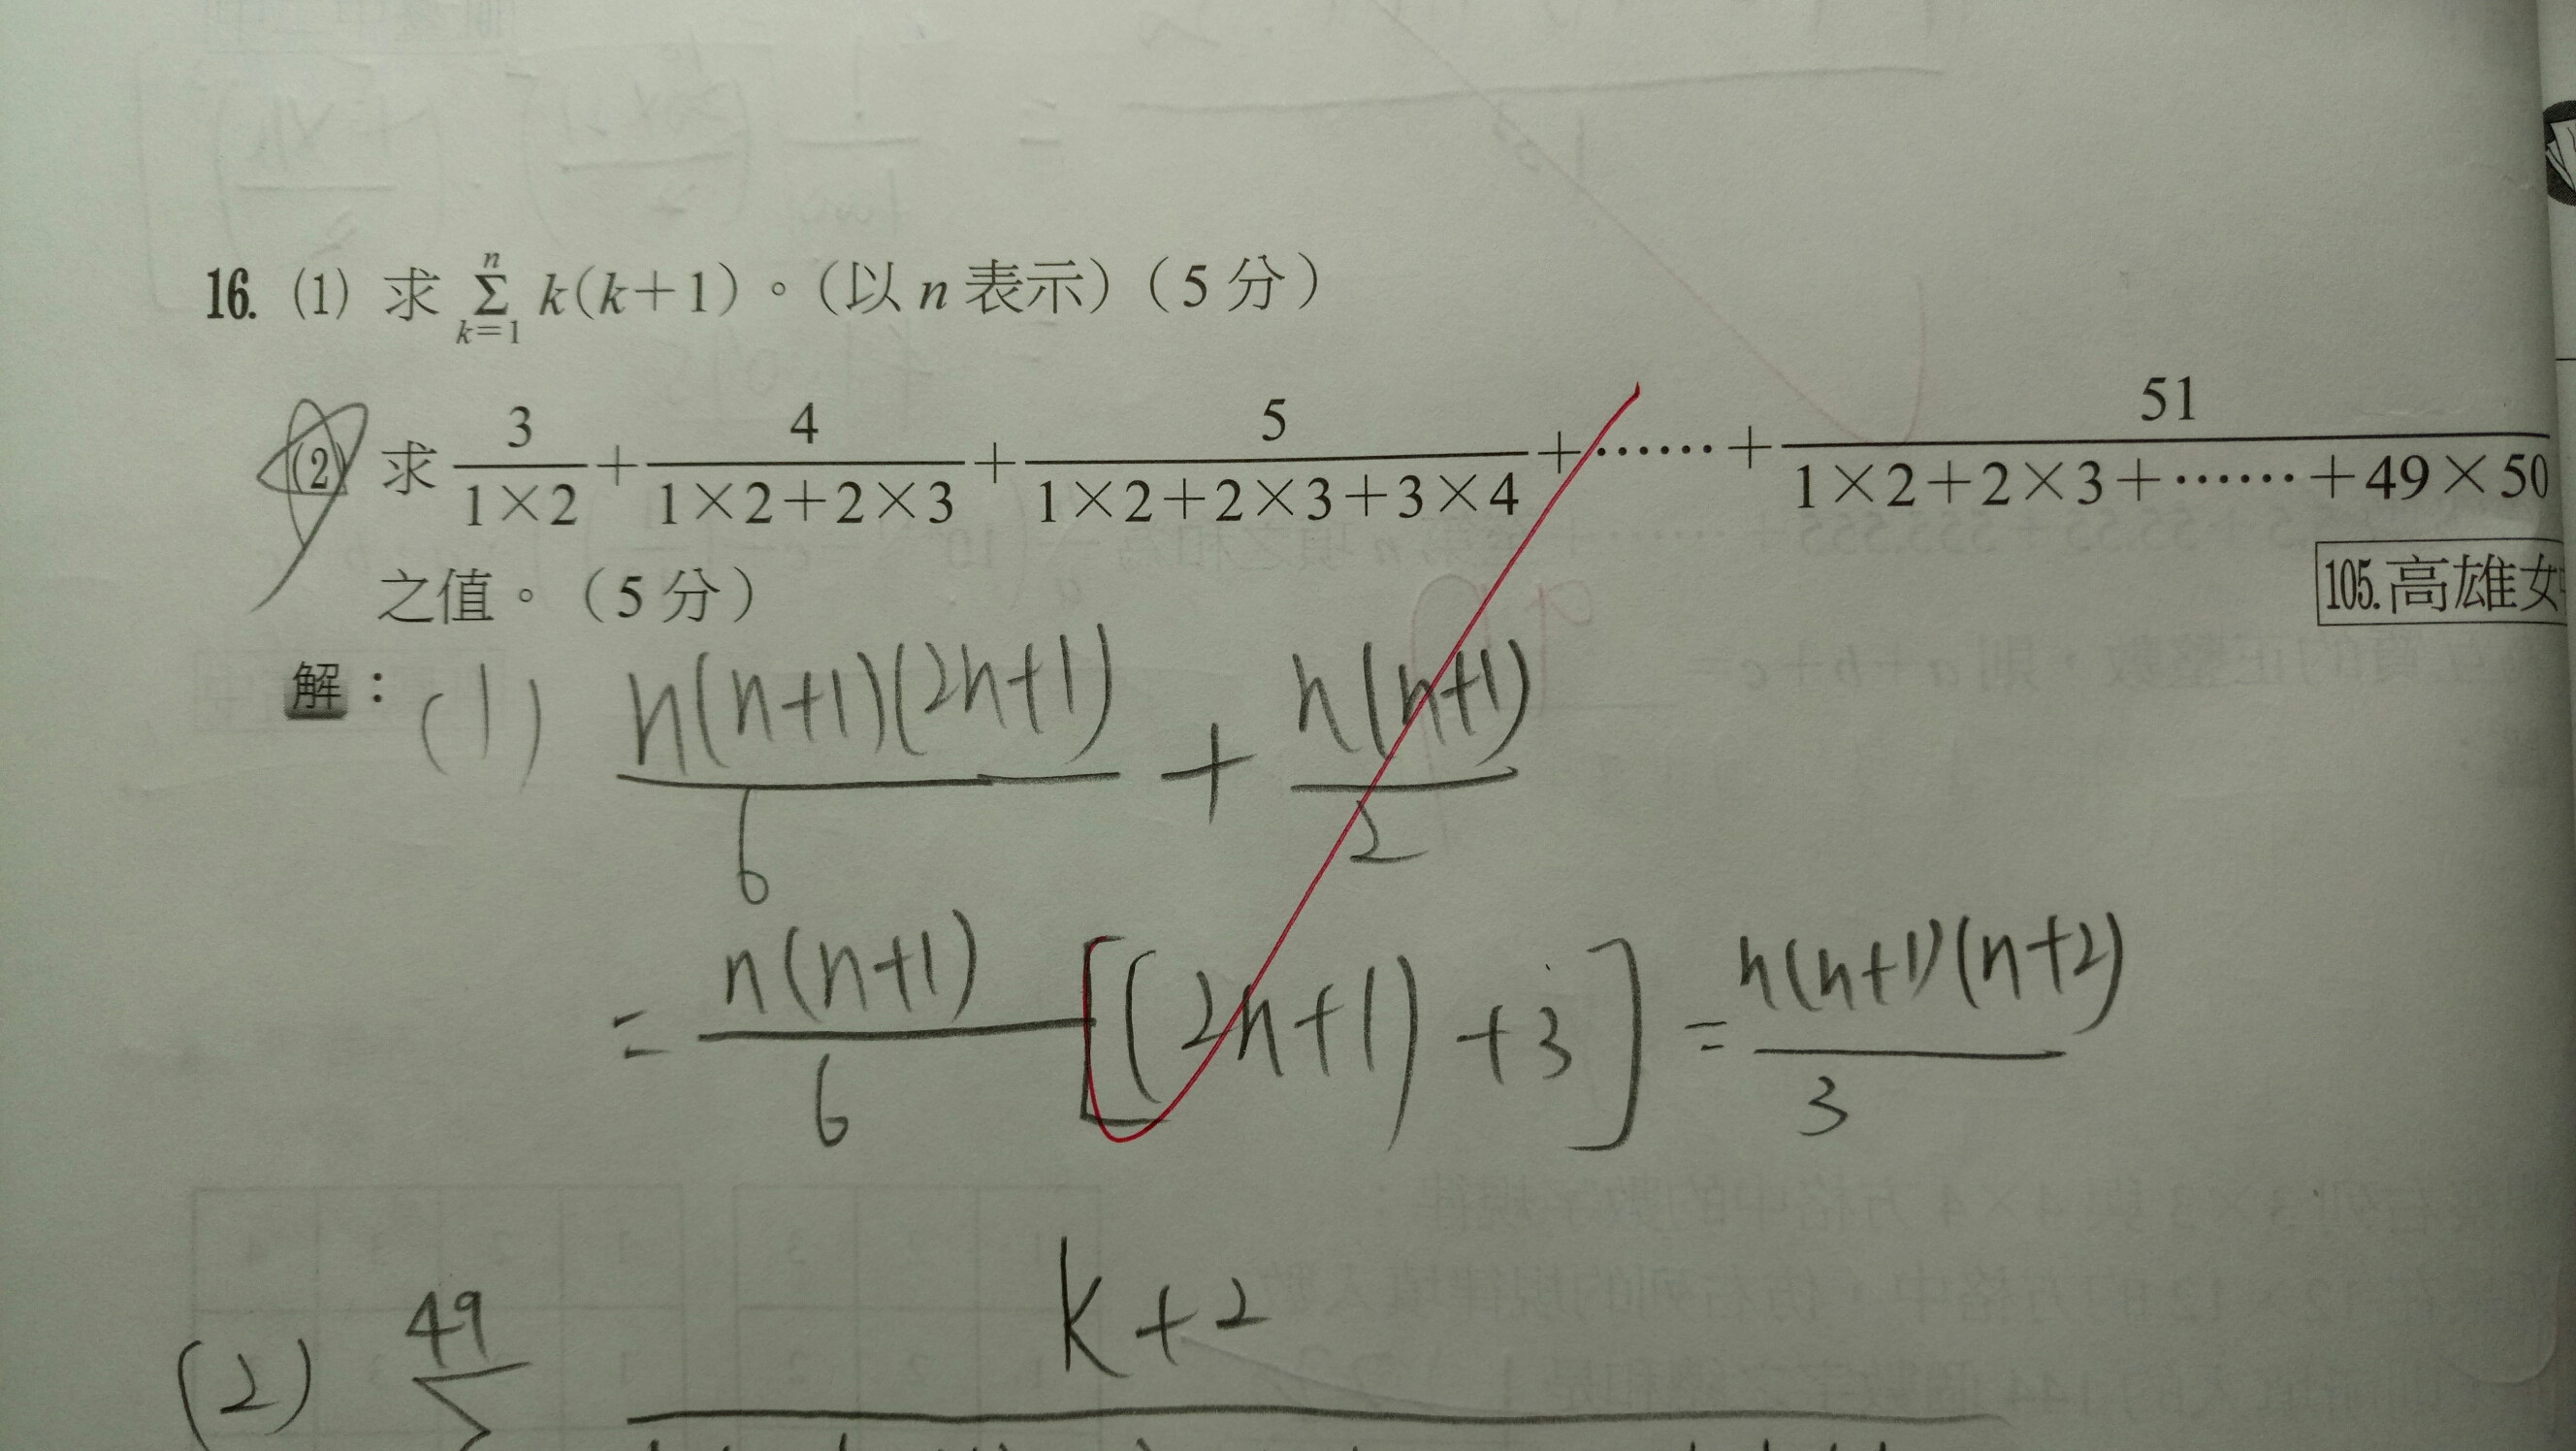 16. (1) 求 $\sum_{k=1}^{n} k(k+1)$。(以 n 表示)(5 分)
(2) 求 $\frac{3}{1×2}+\frac{4}{1×2+2×3}+\frac{5}{1×2+2×3+3×4}+……+\frac{51}{1×2+2×3+……+49×50}$
之值。(5 分)
105.高雄女
解:(1) $\frac{n(n+1)(2n+1)}{6}+\frac{n(n+1)}{2}$
$=\frac{n(n+1)}{6}[(2n+1)+3]=\frac{n(n+1)(n+2)}{3}$
(2) 49 Σ k+2